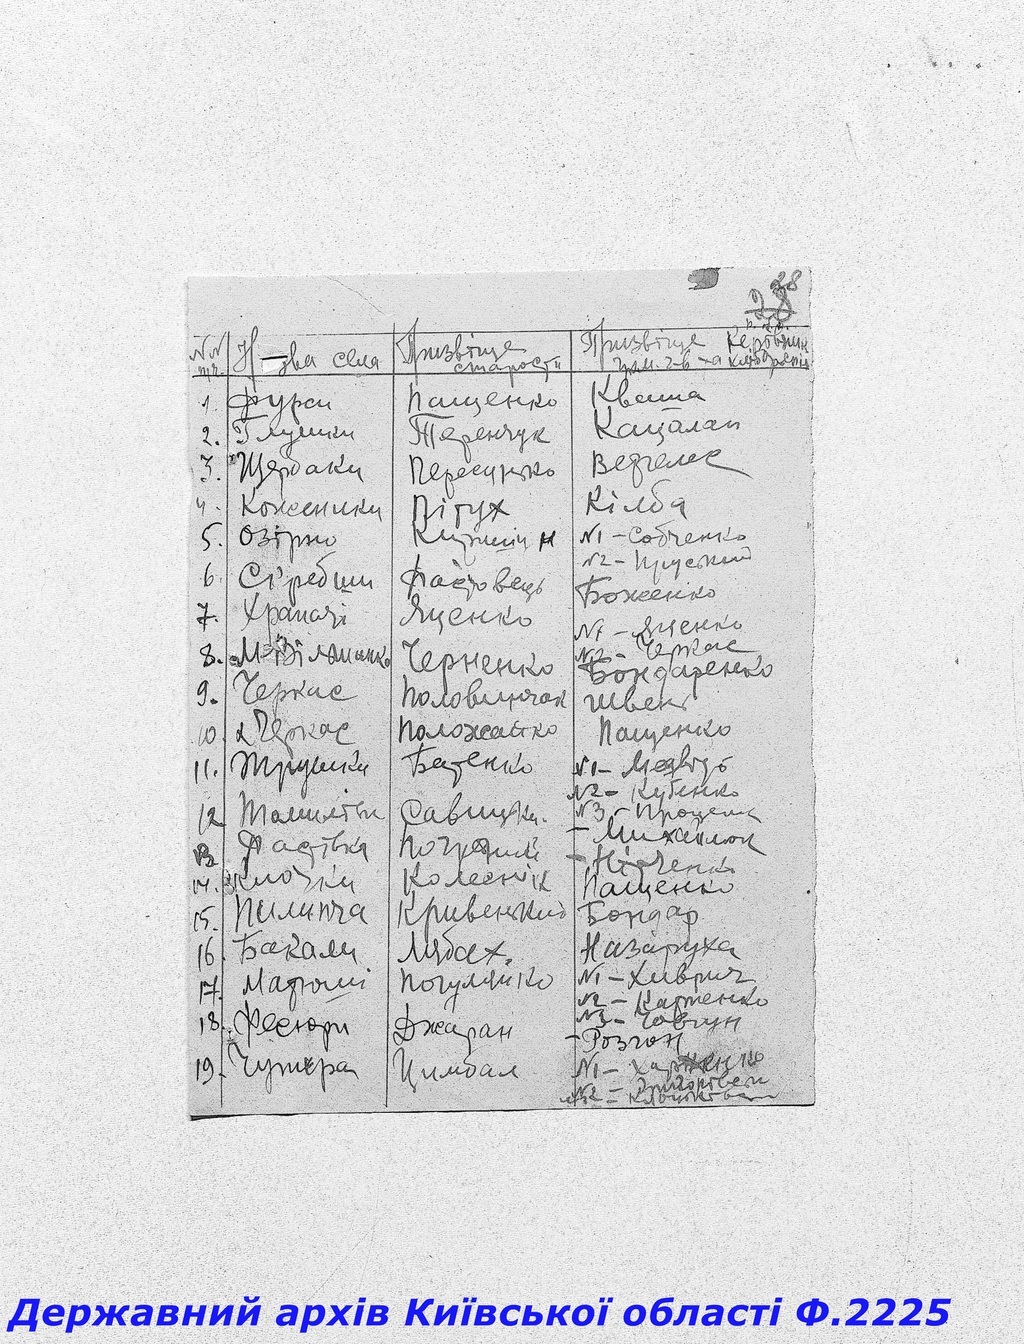 28
28
№№ п.п. Назва села Призвіще старости Призвіще Керівник
1. Фурси Пащенко Кваша
2. Глушки Теренчук Кацалап
3. Щербаки Пересунько Ведмедє
4. Коженики Пітух Кілба
5. Озірно №1 – Собченко
№2 – Пруський
6. Фастовець Боженко
7. Храпачі Яценко
№1 – Яценко
№2 – Черкас
8. М-Вільшанка Черненко Бондаренко
9. Черкас Половинчак Швець
10. Черкас Положайко Пащенко
11. Трушки Баценко №1 – Медвідь
№2 – Кубенко
12 Томилівка Савицьк. №3 – Проценк
– Михайлюк
13 Фастівка
14. Клочки Колеснік Пащенко
15. Пилипча Кривенький Бондар
16. Бакали Лябах. Назаруха
17. Матюші Погуляйко №1 – Хиврич
№2 – Карпенко
18. Фесюри Джаган №3 – Човгун
– Розгон
19. Чупира Цимбал №1 –
№2 –
Державний архів Київської області Ф.2225